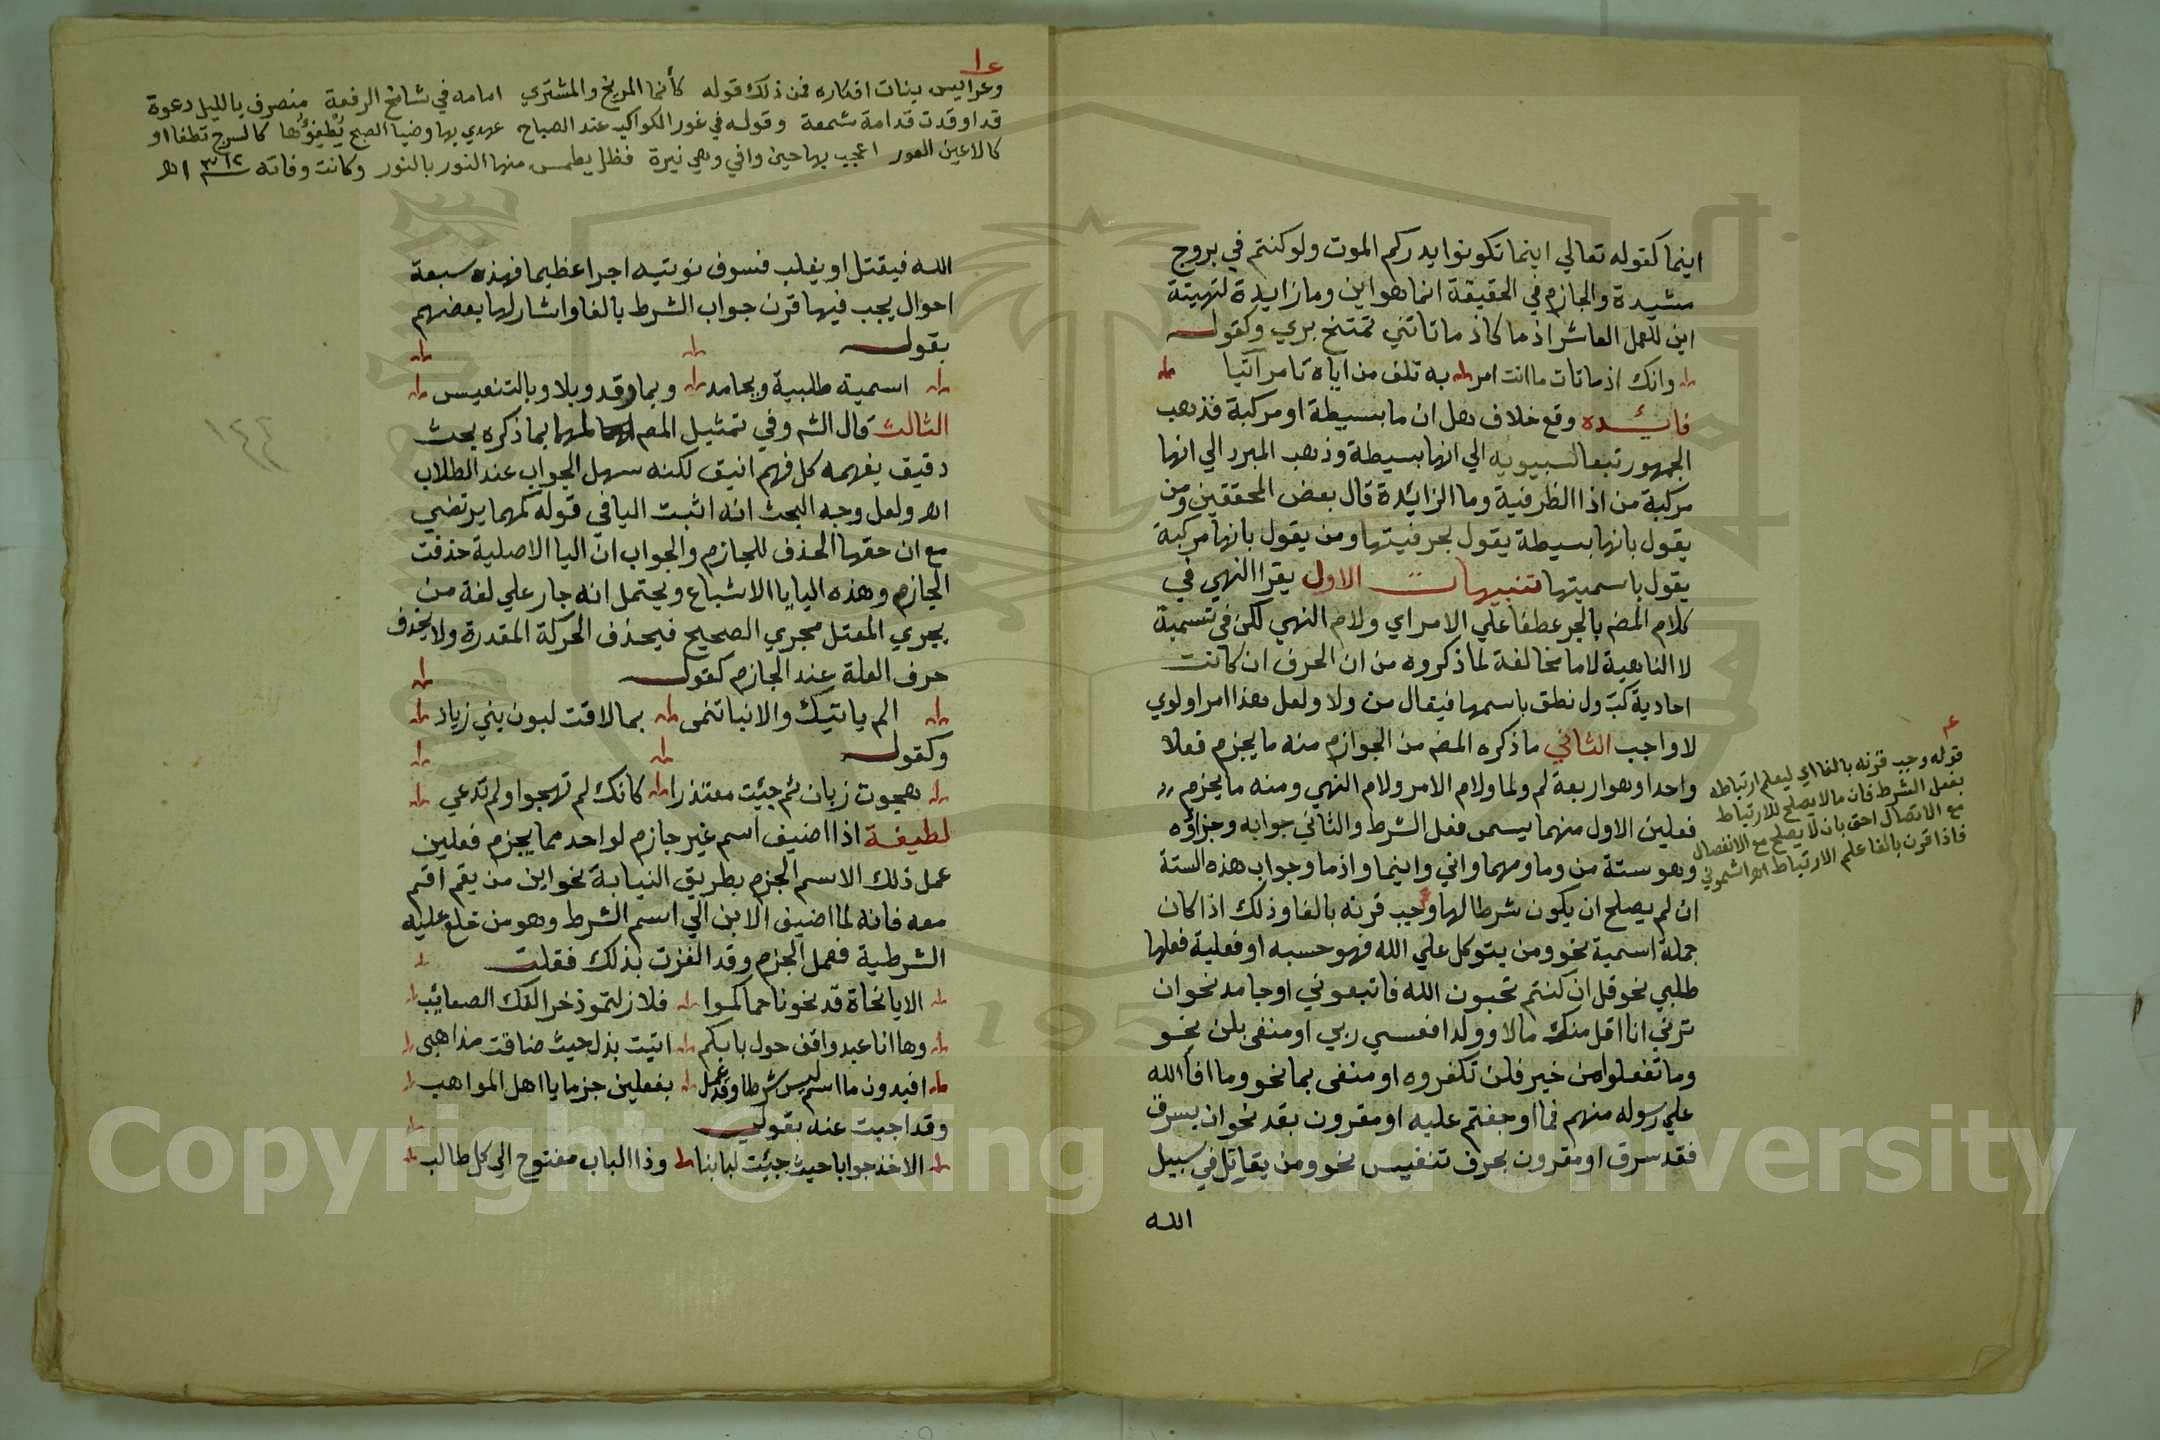 اينما كقوله تعالي اينما تكونوا يدرككم الموت ولو كنتم في بروج
مشيدة والجازم في الحقيقة انما هو اين وما زايدة لتهيئة
اين للعمل العاشر اذ ما كاذ ما تاتني تمتنح بري وكقوله
وانك اذ ما تات ما انت امر به تلف من اياه تامر آتيا
فائده وقع خلاف هل ان ما بسيطة او مركبة فذهب
الجمهور تبعا لسيبويه الي انها بسيطة وذهب المبرد الي انها
مركبة من اذا الظرفية وما الزائدة قال بعض المحققين ومن
يقول بانها بسيطة يقول بحرفيتها ومن يقول بانها مركبة
يقول باسميتها تنبيهات الاول يقرا النهي في
كلام المص بالجر عطفا علي الامر اي ولام النهي لكن في تسمية
لا الناهية لاما مخالفة لما ذكروه من ان الحرف ان كانت
احادية كبَ ول نطق باسمها فيقال من ولا ولعل هذا امر اولوي
لا واجب الثاني ما ذكره المص من الجوازم منه ما يجزم فعلا
واحدا وهو اربعة لم ولما ولام الامر ولام النهي ومنه ما يجزم
فعلين الاول منهما يسمي فعل الشرط والثاني جوابه وجزاؤه
وهو ستة من وما ومهما واني واينما واذ ما وجواب هذه الستة
ان لم يصلح ان يكون شرطا لها وجب قرنه بالفا وذلك اذا كان
جملة اسمية نحو ومن يتوكل علي الله فهو حسبه او فعلية فعلها
طلبي نحو قل ان كنتم تحبون الله فاتبعوني او جامد نحو ان
ترني انا اقل منك مالا وولدا فعسي ربي او منفي بلن نحو
وما تفعلوا من خير فلن تكفروه او منفي بما نحو وما افاالله
علي رسوله منهم فما اوجفتم عليه او مقرون بقد نحو ان يسرق
فقد سرق او مقرون بحرف تنفيس نحو ومن يقاتل في سبيل
الله
قوله وجب قرنه بالفا اي ليعلم ارتباطه
بفعل الشرط فان ما لا يصلح للارتباط
مع الاتصال احق بان لا يصلح مع الانفصال
فاذا قرن بالفا علم الارتباط اهـ اشموني
وعرايس بنات افكاره فمن ذلك قوله كأنما المريخ والمشتري امامه في شامخ الرفعة منصرف بالليل دعوة
قد اوقدت قدامة شمعة وقوله في غور الكواكب عند الصباح عهدي بها وضيا الصبح يُطفِؤُها كالسرج تطفا او
كالاعين العور اعجب بها حين وافي وهي نيرة فظل يطمس منها النور بالنور وكانت وفاته
الله فيقتل او يغلب فسوف نؤتيه اجرا عظيما فهذه سبعة
احوال يجب فيها قرن جواب الشرط بالفا واشار لها بعضهم
بقوله
اسمية طلبية وبجامد وبما وقد وبلا وبالتنفيس
الثالث قال الش وفي تمثيل المص لمهما بما ذكره بحث
دقيق يفهمه كل فهم انيق لكنه سهل الجواب عند الطلاب
اهـ ولعل وجه البحث انه اثبت اليا في قوله كمهما يرتضي
مع ان حقها الحذف للجازم والجواب انّ اليا الاصلية حذفت
للجازم وهذه اليا يا الاشباع ويحتمل انه جار علي لغة من
يجري المعتل مجري الصحيح فيحذف الحركة المقدرة ولا يحذف
حرف العلة عند الجازم كقوله
الم ياتيك والانبا تنمي بما لاقت لبون بني زياد
وكقوله
هجوت زبان ثم جئت معتذرا كانك لم تهجوا ولم تدعي
لطيفة اذا اضيف اسم غير جازم لواحد مما يجزم فعلين
عمل ذلك الاسم الجزم بطريق النيابة نحو ابن من يقم اقم
معه فانه لما اضيف الابن الي اسم الشرط وهو من خلع عليه
الشرطية فعمل الجزم وقد الغزت بذلك فقلت
الا يا نحاة قد نحونا حماكموا فلا زلتمو ذخرا لفك الصعائب
وها انا عبد واقف حول بابكم اتيت بذل حيث ضاقت مذاهبي
افيدون ما اسم ليس شرطا وقد عمل بفعلين جزما يا اهل المواهب
وقد اجبت عنه بقولي
الا خذ جوابا حيث جئت لبابنا وذا الباب مفتوح الي كل طالب
١٤٤
Copyright © King Saud University